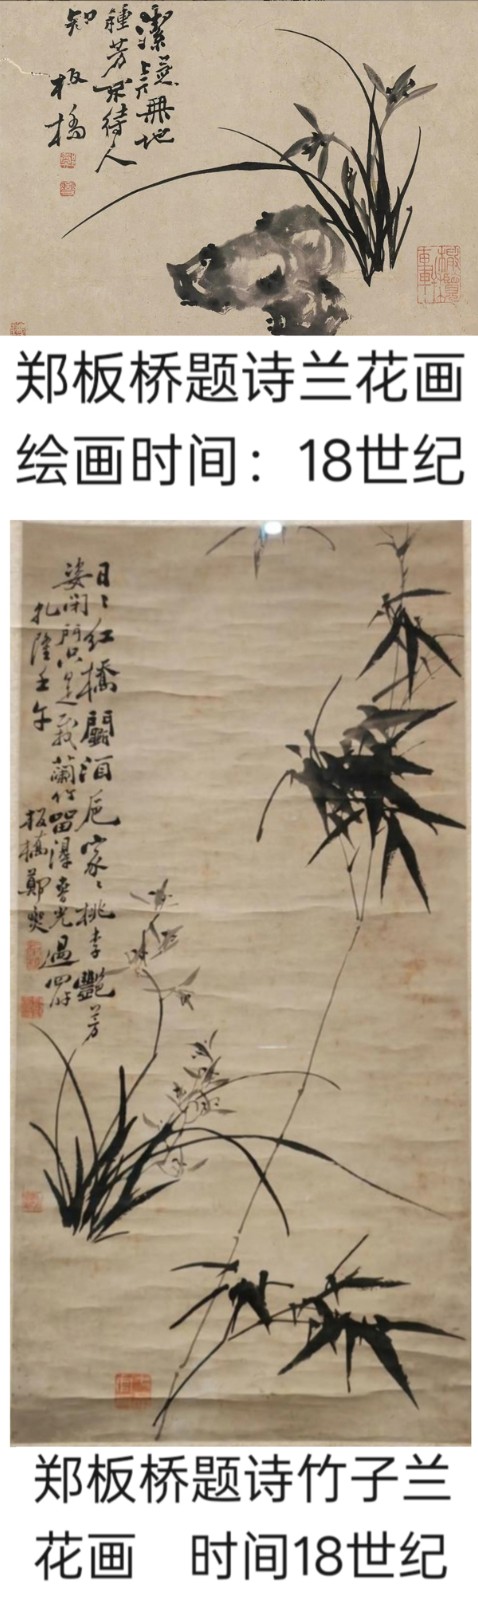 潔 無地
種芳不待人
知
板橋
郑板桥题诗兰花画
绘画时间：18世纪
日〻紅橋鬭酒卮家〻桃李艷芳
姿閉門只是栽蘭竹留得春光過四時
乾隆壬午
板橋鄭燮
郑板桥题诗竹子兰
花画 时间18世纪